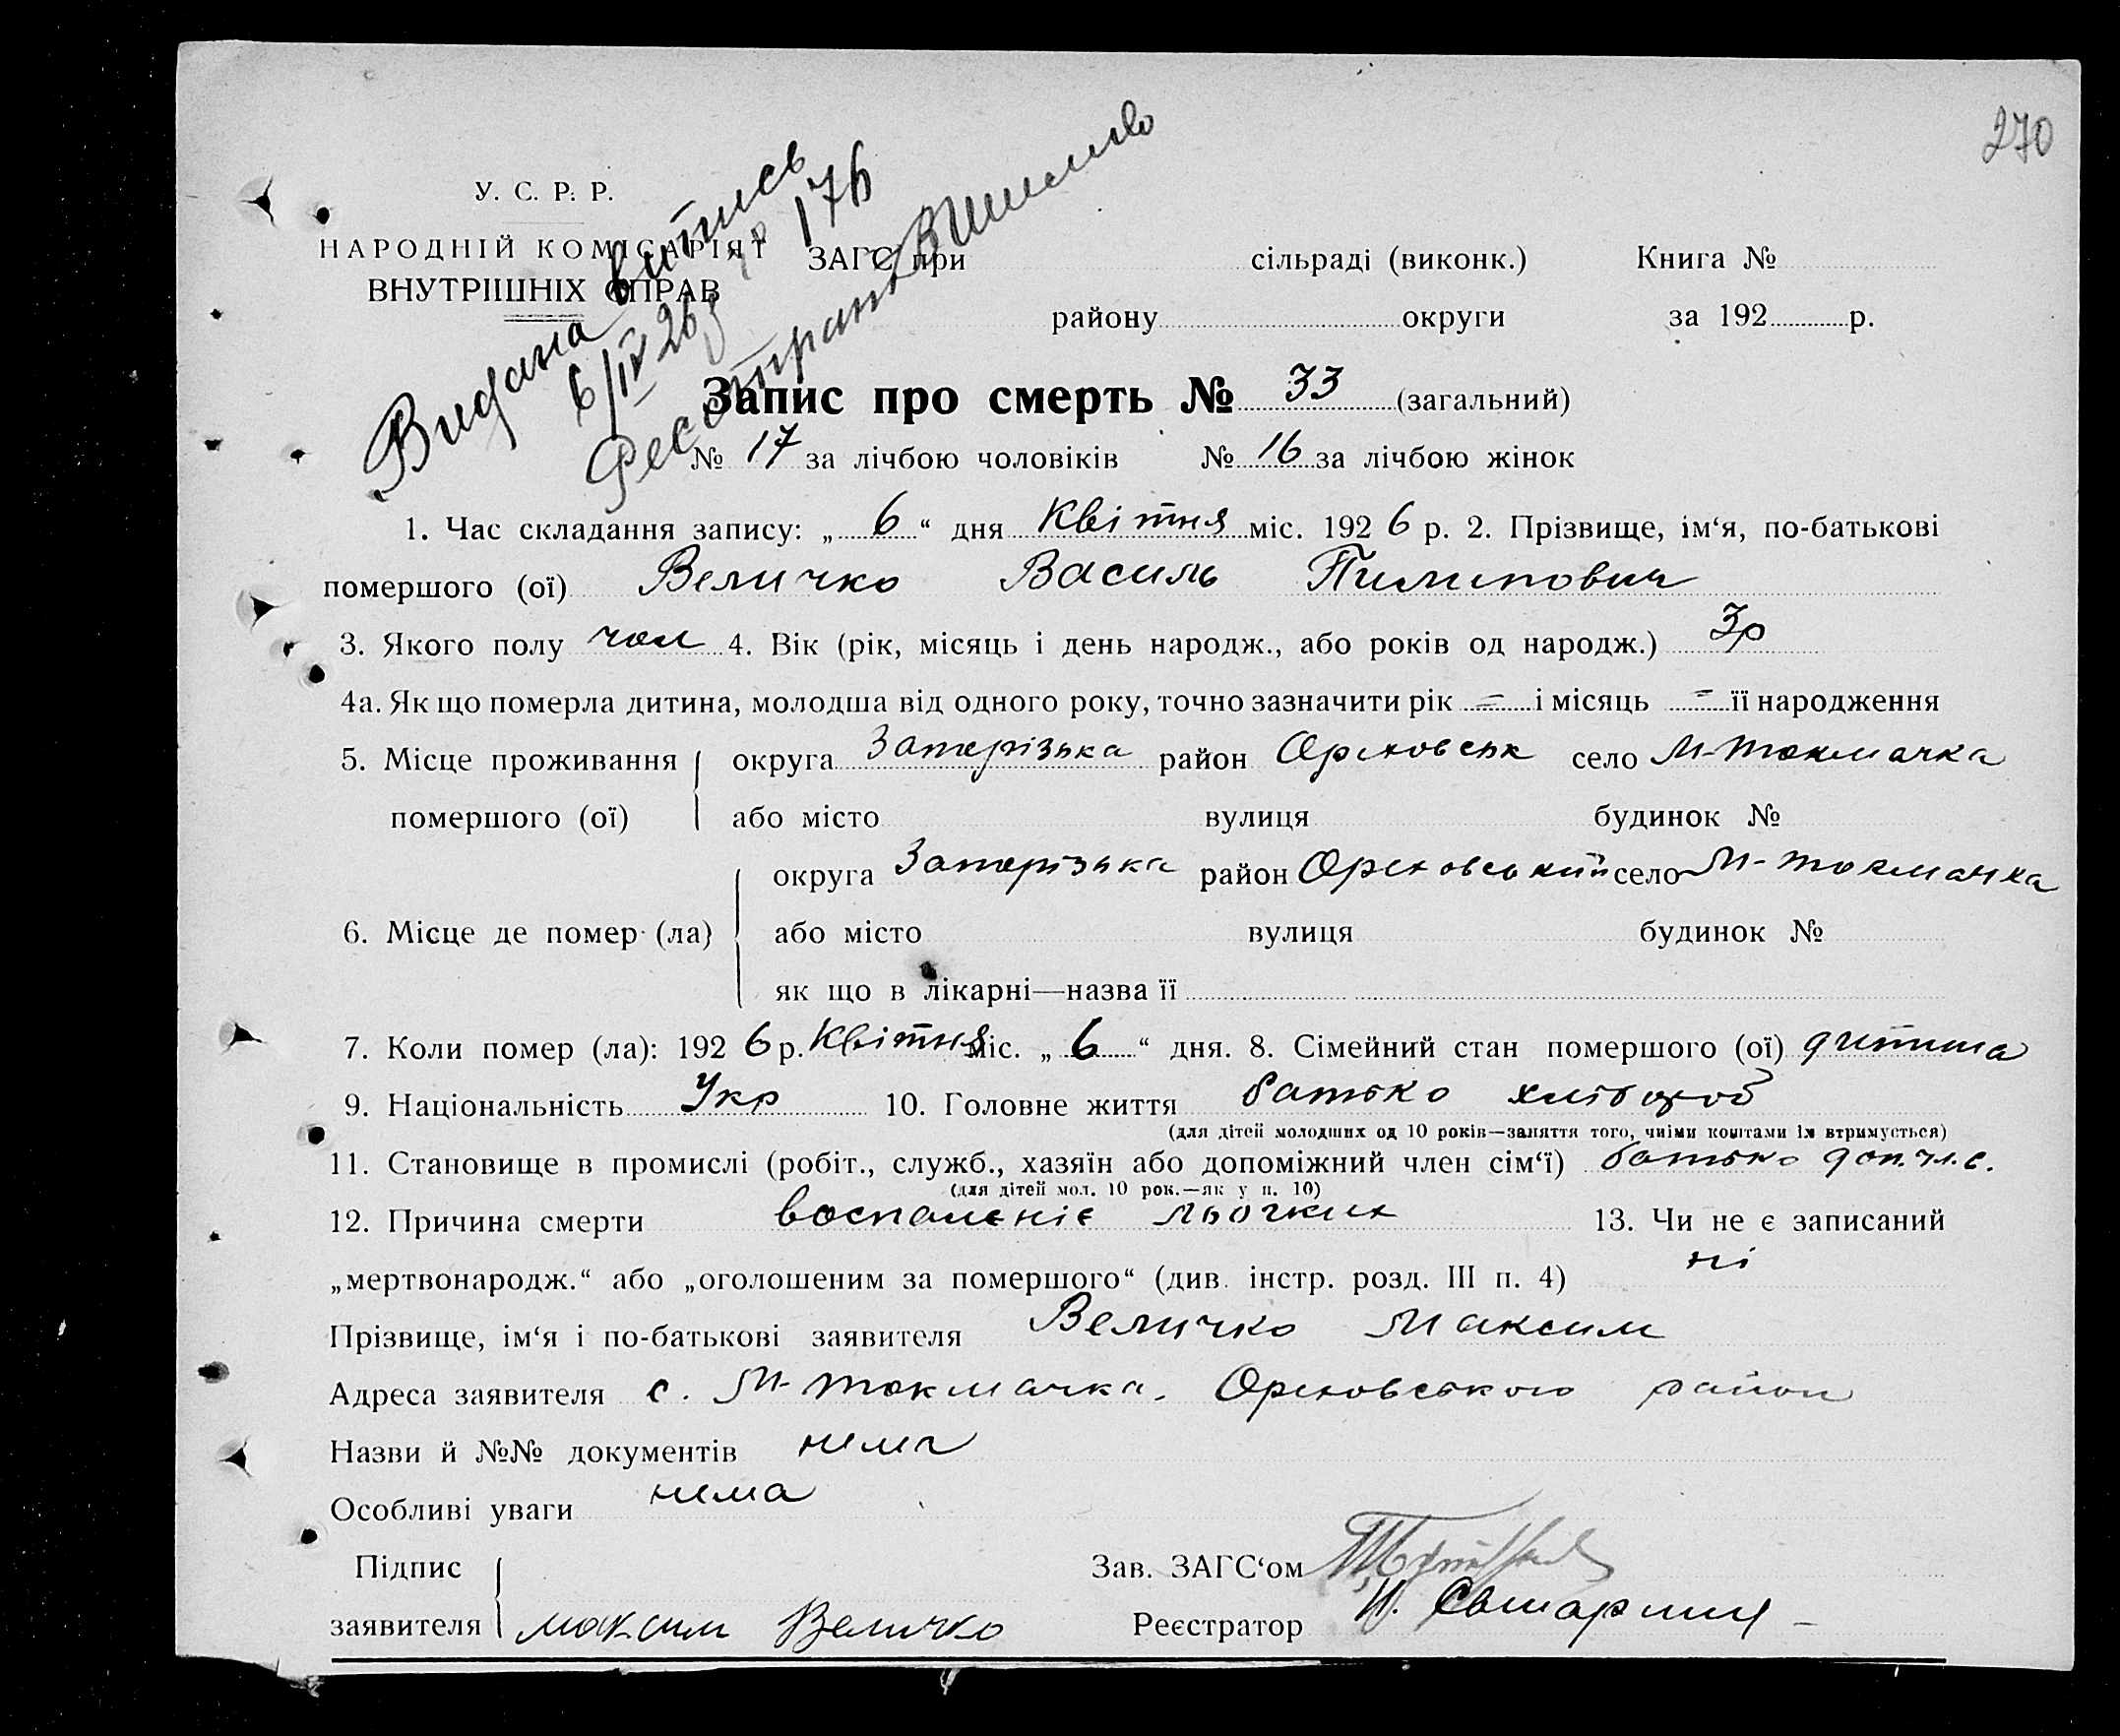 270
У. С. Р. Р.
НАРОДНІЙ КОМІСАРІЯТ
ВНУТРІШНІХ СПРАВ
Видана витпись
6/IV 26 р № 176
ЗАГС при сільраді (виконк.) Книга №
району округи за 192 р.
Запис про смерть № 33 (загальний)
№ 17 за лічбою чоловіків № 16 за лічбою жінок
1. Час складання запису: „ 6 “ дня Квітня міс. 192 6 р. 2. Прізвище, ім‘я, по-батькові
помершого (ої) Величко Василь Пилипович
3. Якого полу чол 4. Вік (рік, місяць і день народж., або років од народж.) 3р
4а. Як що померла дитина, молодша від одного року, точно зазначити рік = і місяць = її народження
5. Місце проживання округа Запорізька район Ореховськ село М-Токмачка
помершого (ої) або місто вулиця будинок №
округа Запорізька район Ореховський село М-Токмачка
6. Місце де помер (ла) або місто вулиця будинок №
як що в лікарні—назва її
7. Коли помер (ла): 192 6 р. Квітня міс. „ 6 “ дня. 8. Сімейний стан помершого (ої) дитина
9. Національність Укр 10. Головне життя батько хлібороб
(для дітей молодших од 10 років—заняття того, чиїми коштами їх втримується)
11. Становище в промислі (робіт., служб., хазяїн або допоміжний член сім‘ї) батько доп. чл. с.
(для дітей мол. 10 рок.—як у п. 10)
12. Причина смерти воспаленіє льогких 13. Чи не є записаний
„мертвонародж.“ або „оголошеним за помершого“ (див. інстр. розд. III п. 4) ні
Прізвище, ім‘я і по-батькові заявителя Величко Максим
Адреса заявителя с. М-Токмачка. Ореховського району
Назви й №№ документів нема
Особливі уваги нема
Підпис Зав. ЗАГС‘ом
заявителя максим Величко Реєстратор